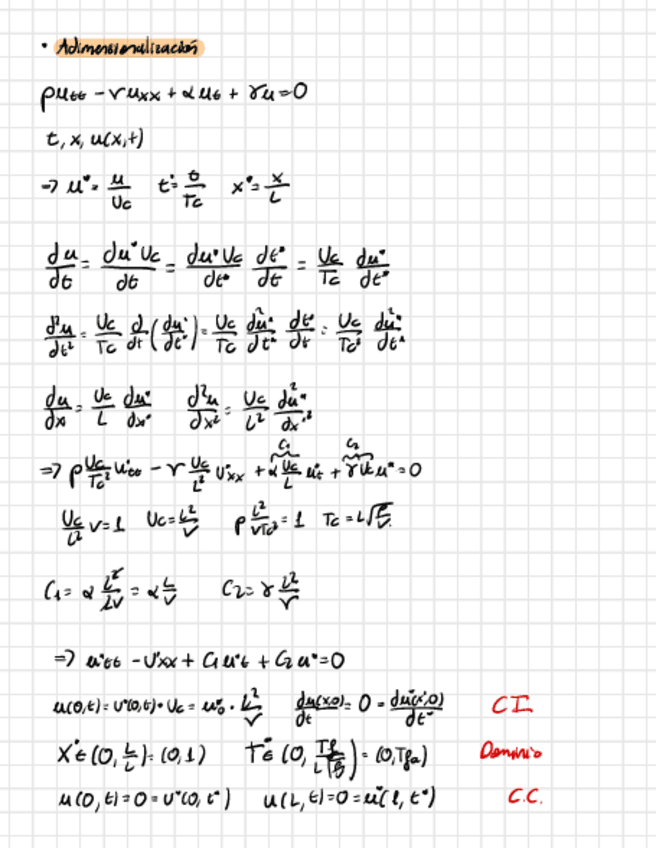 • Adimensionalización
ρutt - νuxx + αut + γu = 0
t, x, u(x,t)
⇒ u* = u/Uc   t* = t/Tc   x* = x/L
du/dt = du* Uc/dt = du* Uc/dt* dt*/dt = Uc/Tc du*/dt*
d²u/dt² = Uc/Tc d/dt (du*/dt*) = Uc/Tc d²u*/dt*² dt*/dt = Uc/Tc² d²u*/dt*²
du/dx = Uc/L du*/dx*   d²u/dx² = Uc/L² d²u*/dx*²
C1   C2
⇒ ρ Uc/Tc² u*tt - ν Uc/L² u*xx + α Uc/L u*t + γUc u* = 0
Uc/L² ν = 1   Uc = L²/ν   ρ L²/(νTc²) = 1   Tc = L√(ρ/ν)
C1 = α L²/(Lν) = α L/ν   C2 = γ L²/ν
⇒ u*tt - u*xx + C1 u*t + C2 u* = 0
u(0,t) = u*(0,t) · Uc = u*0 · L²/ν   du(x,0)/dt = 0 = du*(x*,0)/dt*   CI
X* ∈ (0, L/L) = (0,1)   T* ∈ (0, Tf/(L√(ρ/ν))) = (0,Tfa)   Dominio
u(0,t) = 0 = u*(0,t*)   u(L,t) = 0 = u*(1,t*)   C.C.